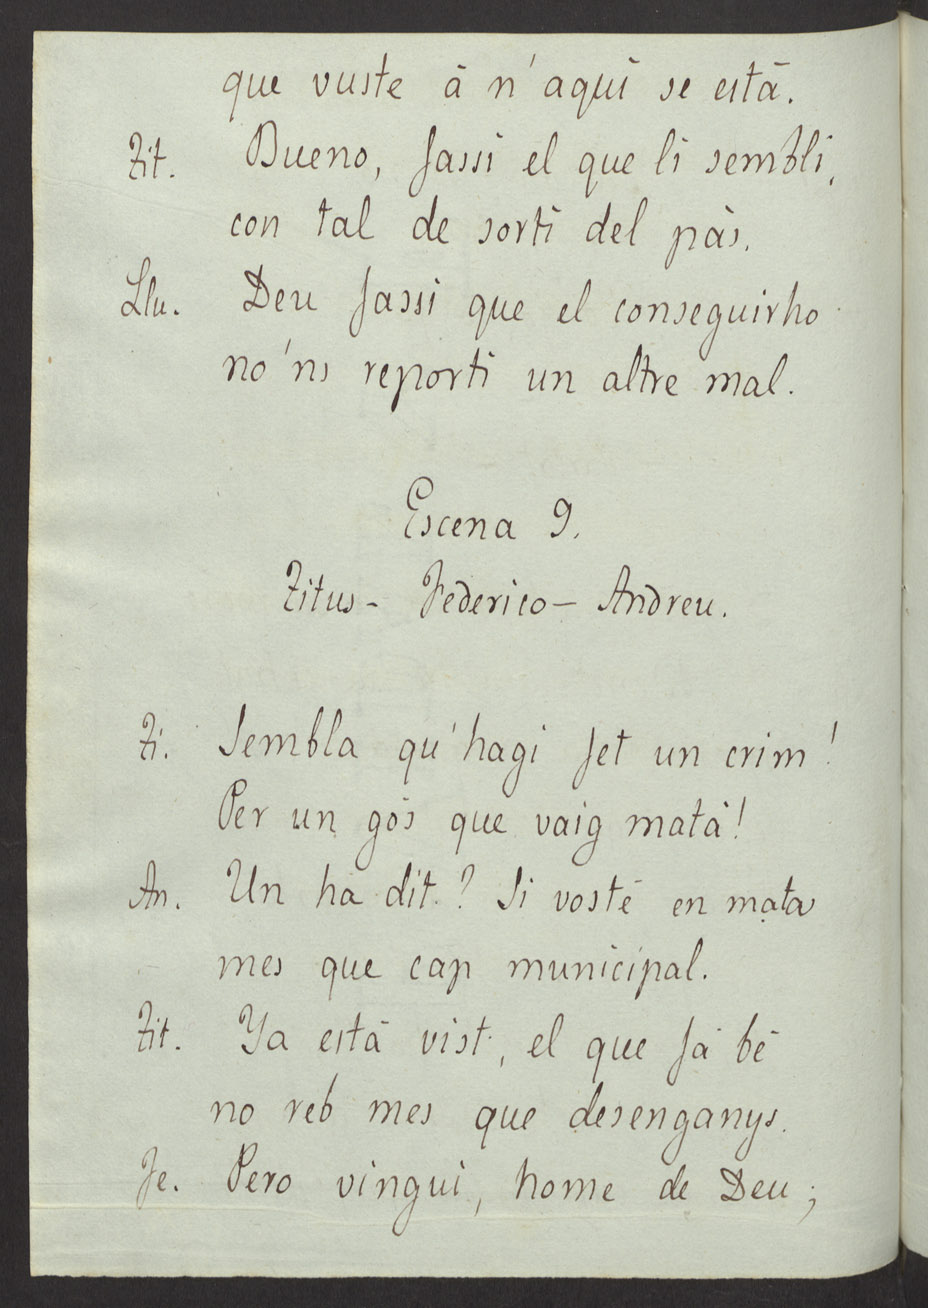 que vuste á n'aquí se está.
Tit. Bueno, fassi el que li sembli,
con tal de sortí del pàs.
Llu. Deu fassi que el conseguirho
no'ns reporti un altre mal.
Escena 9.
Titus - Federico - Andreu.
Ti. Sembla qu'hagi fet un crim!
Per un gós que vaig matá!
An. Un ha dit? Si vosté en mata
mes que cap municipal.
Tit. Ya está vist, el que fá bé
no reb mes que desenganys.
Fe. Pero vingui, home de Deu;